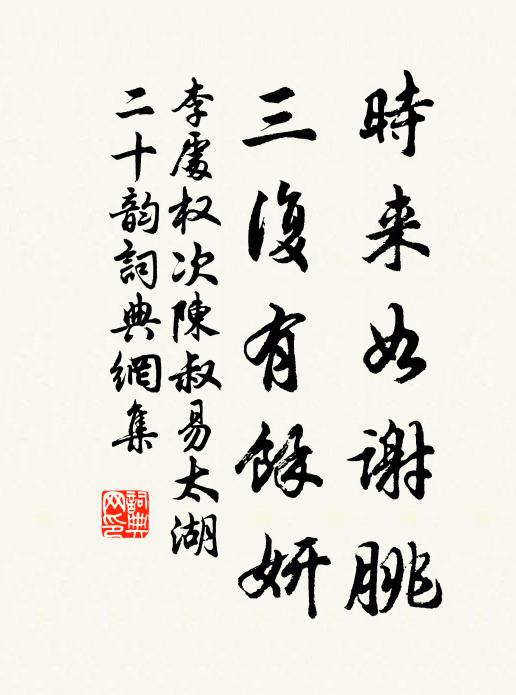 時来如谢朓
三復有餘妍
李處权次陳叔易太湖
二十韵詞典網集
詞典网印